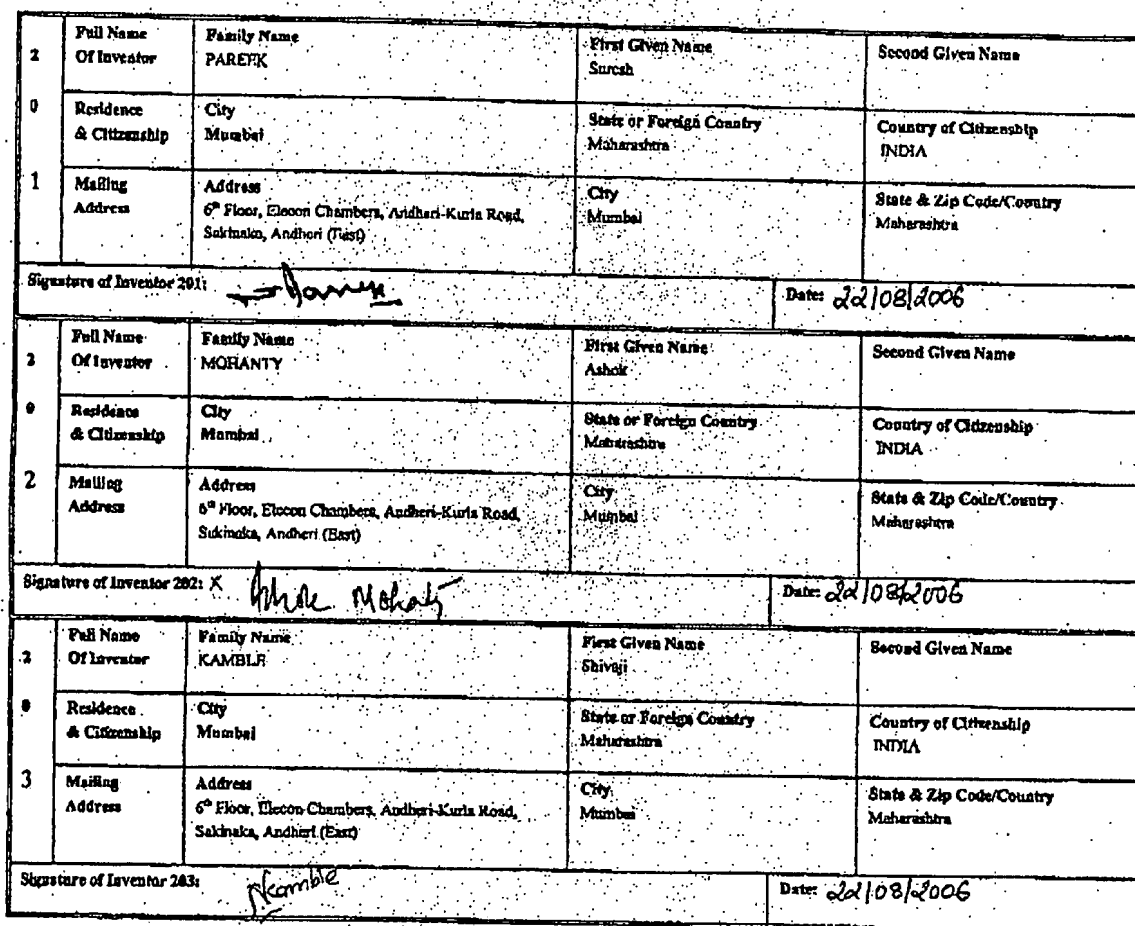 2 Full Name Of Inventor Family Name PAREEK First Given Name Suresh Second Given Name
0 Residence & Citizenship City Mumbai State or Foreign Country Maharashtra Country of Citizenship INDIA
1 Mailing Address Address 6th Floor, Elecon Chambers, Andheri-Kurla Road, Sakinaka, Andheri (East) City Mumbai State & Zip Code/Country Maharashtra
Signature of Inventor 201: Date: 22/08/2006
2 Full Name Of Inventor Family Name MOHANTY First Given Name Ashok Second Given Name
0 Residence & Citizenship City Mumbai State or Foreign Country Maharashtra Country of Citizenship INDIA
2 Mailing Address Address 6th Floor, Elecon Chambers, Andheri-Kurla Road, Sakinaka, Andheri (East) City Mumbai State & Zip Code/Country Maharashtra
Signature of Inventor 202: X Ashok Mohanty Date: 22/08/2006
2 Full Name Of Inventor Family Name KAMBLE First Given Name Shivaji Second Given Name
0 Residence & Citizenship City Mumbai State or Foreign Country Maharashtra Country of Citizenship INDIA
3 Mailing Address Address 6th Floor, Elecon Chambers, Andheri-Kurla Road, Sakinaka, Andheri (East) City Mumbai State & Zip Code/Country Maharashtra
Signature of Inventor 203: Kamble Date: 22/08/2006